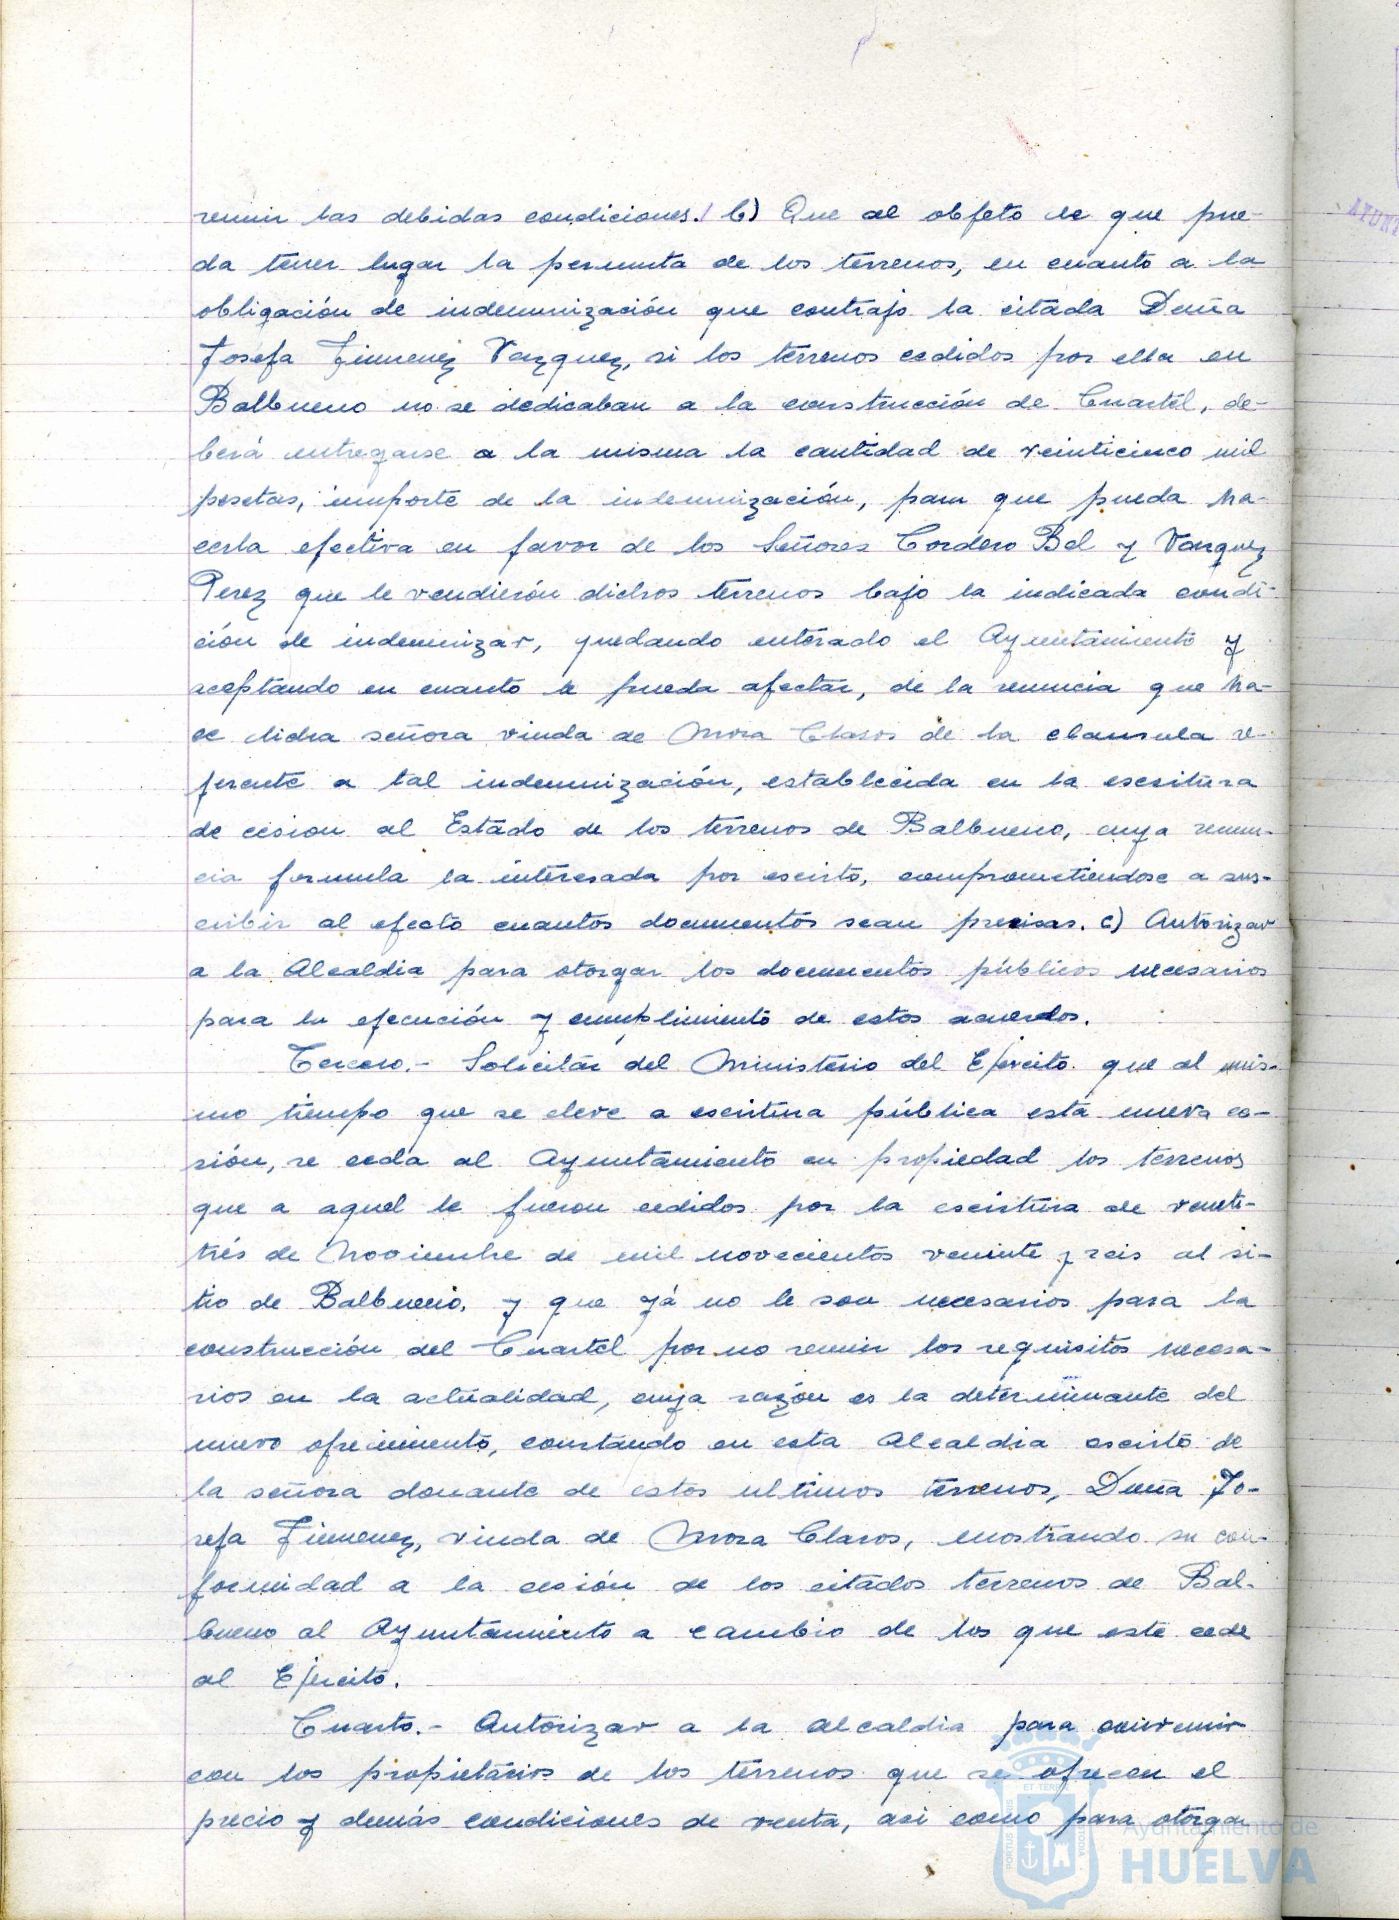 reunir las debidas condiciones. b) Que al objeto de que pue-
da tener lugar la permuta de los terrenos, en cuanto a la
obligación de indemnización que contrajo la citada Doña
Josefa Jimenez Vazquez, si los terrenos cedidos por ella en
Balbueno no se dedicaban a la construcción de Cuartel, de-
berá entregarse a la misma la cantidad de veinticinco mil
pesetas, importe de la indemnización, para que pueda ha-
cerla efectiva en favor de los Señores Cordero Bel y Vazquez
Perez que le vendierón dichos terrenos bajo la indicada condi-
ción de indemnizar, quedando enterado el Ayuntamiento y
aceptando en cuanto le pueda afectar, de la renuncia que ha-
ce dicha señora viuda de Mora Claros de la clausula re-
ferente a tal indemnización, establecida en la escritura
de cesion al Estado de los terrenos de Balbueno, cuya renun-
cia formula la interesada por escrito, comprometiendose a sus-
cribir al efecto cuantos documentos sean precisos. c) Autorizar
a la Alcaldia para otorgar los documentos públicos necesarios
para la ejecución y cumplimiento de estos acuerdos.
Tercero.- Solicitar del Ministerio del Ejército que al mis-
mo tiempo que se eleve a escritura pública esta nueva ce-
sión, se ceda al Ayuntamiento en propiedad los terrenos
que a aquel le fueron cedidos por la escritura de venti-
trés de Noviembre de mil novecientos veninte y seis al si-
tio de Balbueno, y que yá no le son necesarios para la
construcción del Cuartel por no reunir los requisitos necesa-
rios en la actualidad, cuya razón es la determinante del
nuevo ofrecimiento, constando en esta Alcaldia escrito de
la señora donante de estos ultimos terrenos, Doña Jo-
sefa Jimenez, viuda de Mora Claros, mostrando su con-
formidad a la cesión de los citados terrenos de Bal-
bueno al Ayuntamiento a cambio de los que este cede
al Ejército.
Cuarto.- Autorizar a la Alcaldia para convenir
con los propietarios de los terrenos que se ofrecen el
precio y demás condiciones de venta, asi como para otorgar
AYUNT
Ayuntamiento de
HUELVA